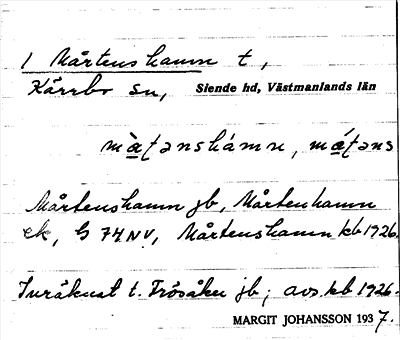 1 Mårtenshamn t,
Kärrbo sn, Siende hd, Västmanlands län
Mårtenshamn jb, Mårtenhamn
ek, G 74 NV, Mårtenshamn kb 1926.
t. Frösåker jb; avs. kb 1926.
MARGIT JOHANSSON 1937.